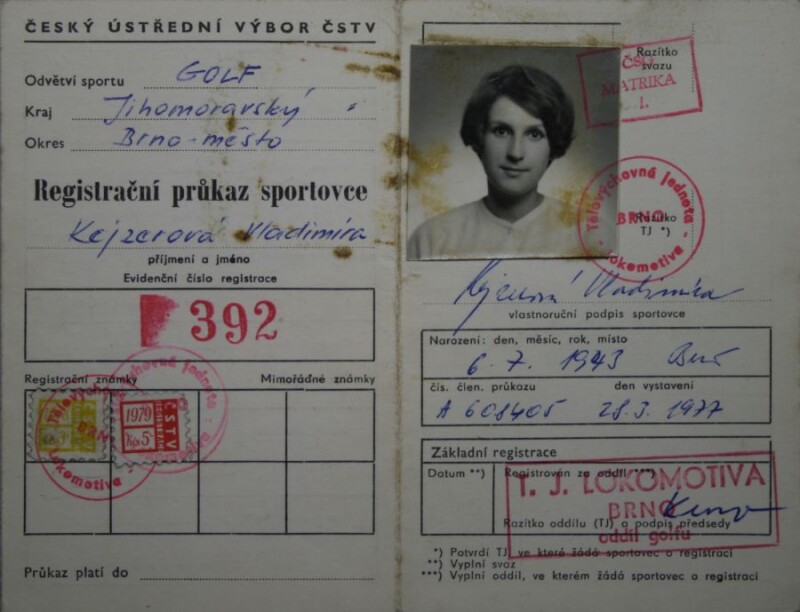 ČESKÝ ÚSTŘEDNÍ VÝBOR ČSTV
Odvětví sportu GOLF
Kraj Jihomoravský
Okres Brno-město
Registrační průkaz sportovce
Kejzerová Vladimíra
příjmení a jméno
Evidenční číslo registrace
392
Registrační známky Mimořádné známky
1979
Kčs 5
ČSTV
Tělovýchovná jednota
BRN
Lokomotiva
Průkaz platí do
Razítko
svazu
ČSG
MATRIKA
1.
Tělovýchovná jednota
BRNO
Lokomotiva
Razítko
TJ *)
Vladimíra
vlastnoruční podpis sportovce
Narození: den, měsíc, rok, místo
6. 7. 1943
čís. člen. průkazu den vystavení
A 608405 28.3.1977
Základní registrace
Datum **) Registrován za oddíl ***)
T. J. LOKOMOTIVA
BRNO
oddíl golfu
Razítko oddílu (TJ) a podpis předsedy
*) Potvrdí TJ, ve které žádá sportovec o registraci
**) Vyplní svaz
***) Vyplní oddíl, ve kterém žádá sportovec o registraci